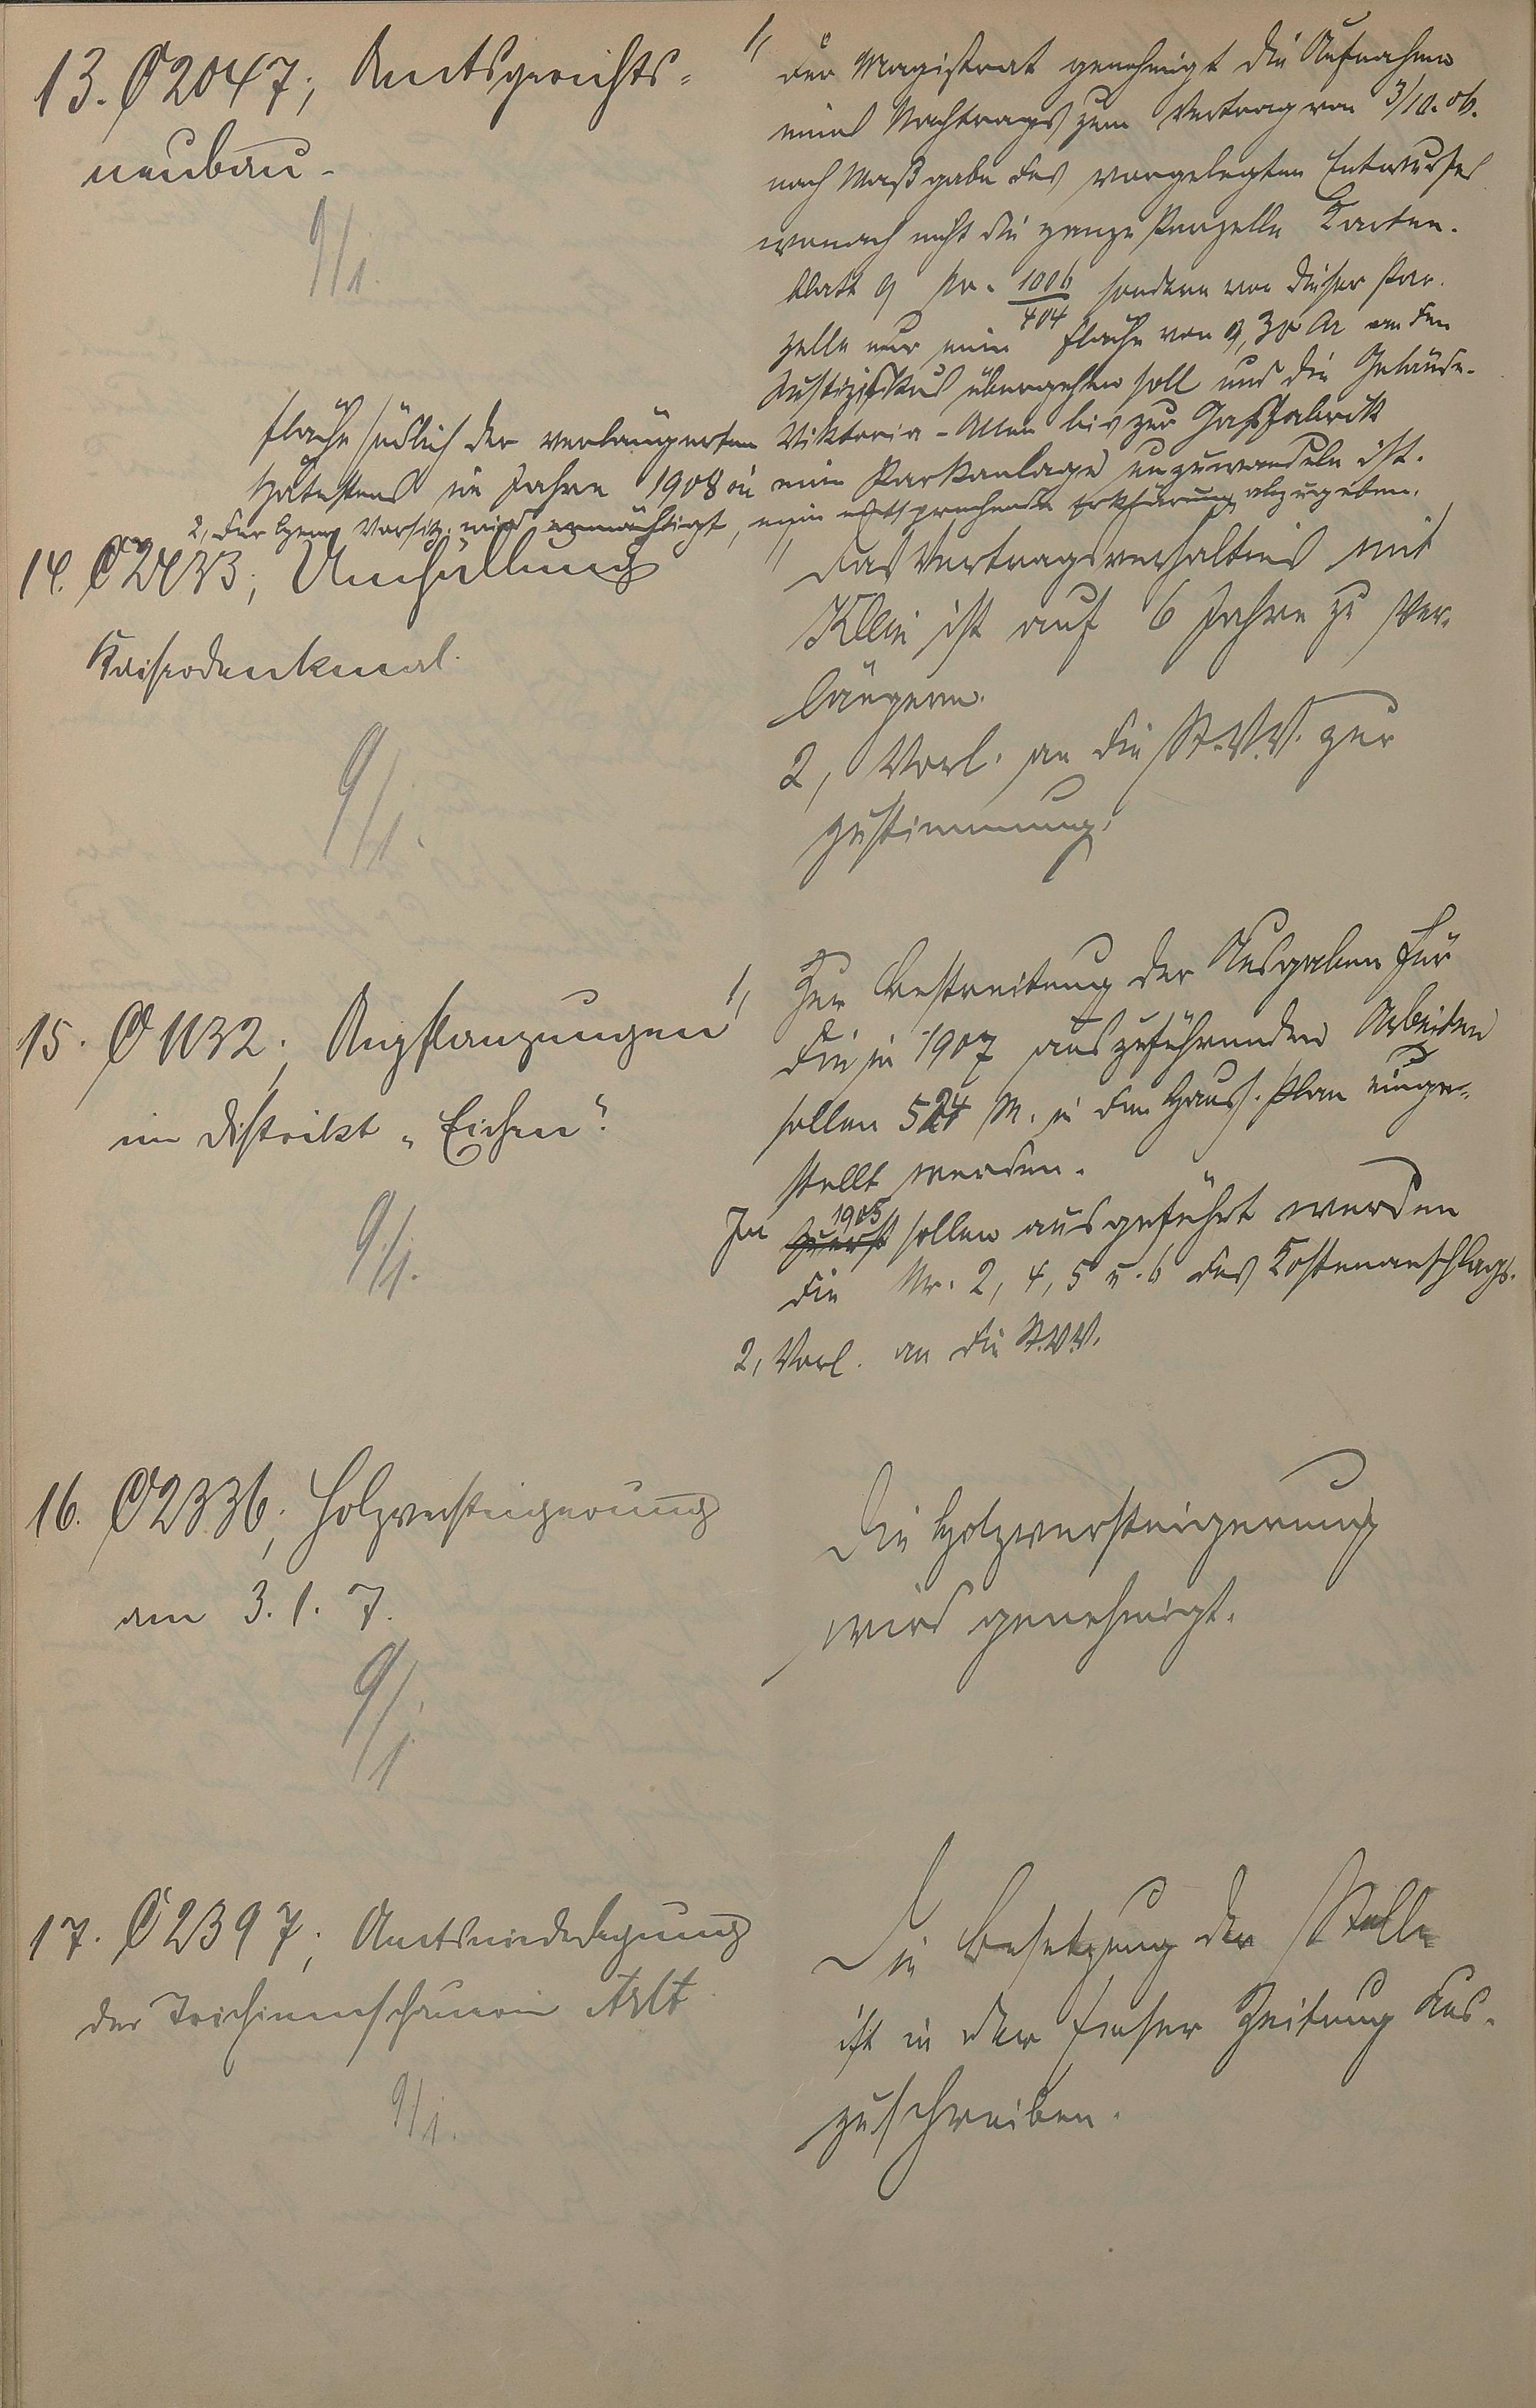 13. C 2047; Amtsgerichts-
neubau.
9/1.
1, Der Magistrat genehmigt die Aufnahme
eines Nachtrags zum Vertrag von 3/10. 06.
nach Maßgabe des vorgelegten Entwurfes
wonach nicht die ganze Parzelle Karten-
blatt 9 Nr. 1006/404 sondern von dieser Par-
zelle nur eine Fläche von 9,30 Ar an den
Justizfiskus übergehen soll und die Gelände-
fläche südlich der verlängerten Viktoria-Allee bis zur Gasfabrik
spätestens im Jahre 1908 in eine Parkanlage umzuwandeln ist.
2, Der Vorsitz. wird ermächtigt, eine entsprechende Erklärung abzugeben.
14. C 2433; Umhüllung
Kaiserdenkmal.
9/1.
1, Das Vertragsverhältnis mit
Klein ist auf 6 Jahre zu ver-
längern.
2, Vorl. an die St.V.V. zur
Zustimmung.
15. C 1132; Anpflanzungen
im Distrikt „Eichen“.
9/1.
1, Zur Bestreitung der Ausgaben für
die in 1907 auszuführenden Arbeiten
sollen 524 M. in den Haush. Plan einge-
stellt werden.
In 1905 zuerst sollen ausgeführt werden
die Nr. 2, 4, 5 u. 6 des Kostenanschlags.
2, Vorl. an die St.V.V.
16. C 2336; Holzversteigerung
am 3. 1. 7.
9/1.
Die Holzversteigerung
wird genehmigt.
17. C 2397; Amtsniederlegung
der Trichinenschauerin Arlt
9/1.
Die Besetzung der Stelle
ist in der Emser Zeitung aus-
zuschreiben.